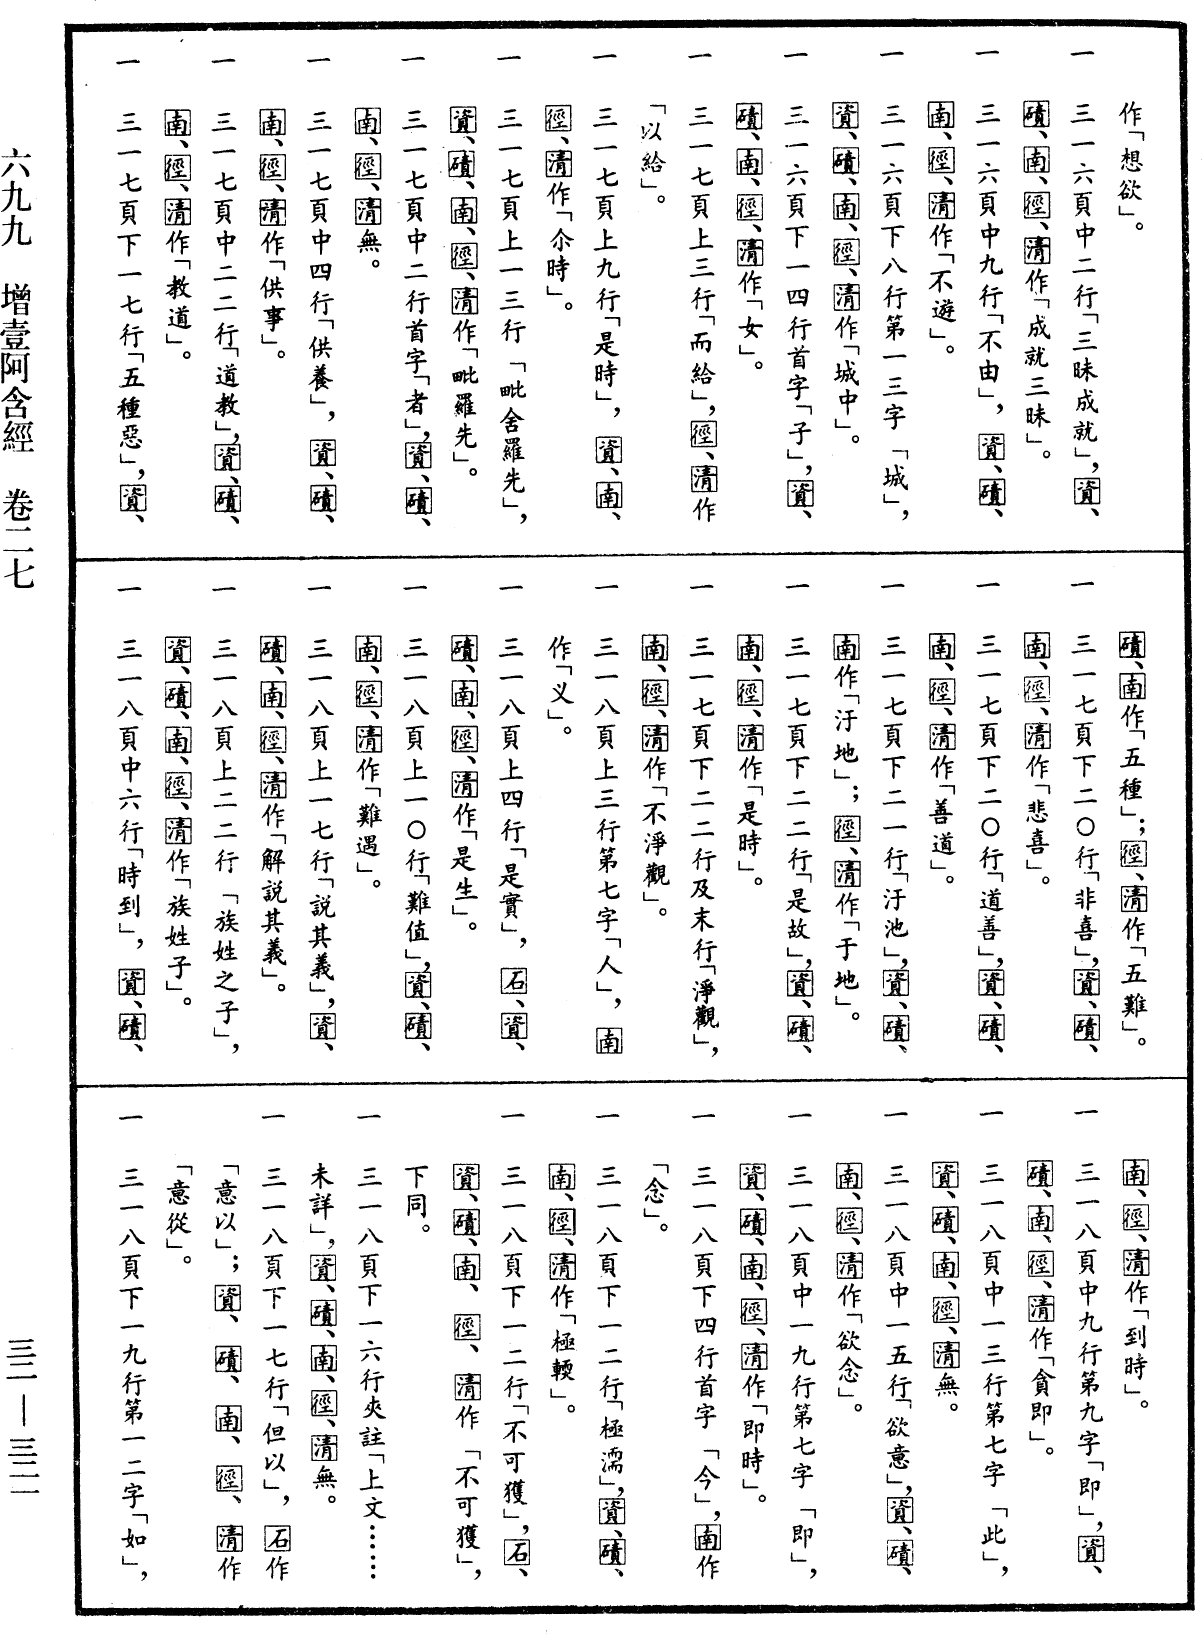 作「想欲」。
一　三一六頁中二行「三昧成就」，資、
磧、南、徑、清作「成就三昧」。
一　三一六頁中九行「不由」，資、磧、
南、徑、清作「不遊」。
一　三一六頁下八行第一三字「城」，
資、磧、南、徑、清作「城中」。
一　三一六頁下一四行首字「子」，資、
磧、南、徑、清作「女」。
一　三一七頁上三行「而給」，徑、清作
「以給」。
一　三一七頁上九行「是時」，資、南、
徑、清作「尒時」。
一　三一七頁上一三行「毗舍羅先」，
資、磧、南、徑、清作「毗羅先」。
一　三一七頁中二行首字「者」，資、磧、
南、徑、清無。
一　三一七頁中四行「供養」，資、磧、
南、徑、清作「供事」。
一　三一七頁中二二行「道教」，資、磧、
南、徑、清作「教道」。
一　三一七頁下一七行「五種惡」，資、
磧、南作「五種」；徑、清作「五難」。
一　三一七頁下二〇行「非喜」，資、磧、
南、徑、清作「悲喜」。
一　三一七頁下二〇行「道善」，資、磧、
南、徑、清作「善道」。
一　三一七頁下二一行「汙池」，資、磧、
南作「汙地」；徑、清作「于地」。
一　三一七頁下二二行「是故」，資、磧、
南、徑、清作「是時」。
一　三一七頁下二二行及末行「淨觀」，
南、徑、清作「不淨觀」。
一　三一八頁上三行第七字「人」，南
作「义」。
一　三一八頁上四行「是實」，石、資、
磧、南、徑、清作「是生」。
一　三一八頁上一〇行「難值」，資、磧、
南、徑、清作「難遇」。
一　三一八頁上一七行「說其義」，資、
磧、南、徑、清作「解說其義」。
一　三一八頁上二二行「族姓之子」，
資、磧、南、徑、清作「族姓子」。
一　三一八頁中六行「時到」，資、磧、
南、徑、清作「到時」。
一　三一八頁中九行第九字「即」，資、
磧、南、徑、清作「貪即」。
一　三一八頁中一三行第七字「此」，
資、磧、南、徑、清無。
一　三一八頁中一五行「欲意」，資、磧、
南、徑、清作「欲念」。
一　三一八頁中一九行第七字「即」，
資、磧、南、徑、清作「即時」。
一　三一八頁下四行首字「今」，南作
「念」。
一　三一八頁下一二行「極濡」，資、磧、
南、徑、清作「極輭」。
一　三一八頁下一二行「不可獲」，石、
資、磧、南、徑、清作「不可獲」，
下同。
一　三一八頁下一六行夾註「上文……
未詳」，資、磧、南、徑、清無。
一　三一八頁下一七行「但以」，石作
「意以」；資、磧、南、徑、清作
「意從」。
一　三一八頁下一九行第一二字「如」，
六九九　增壹阿含經　卷二七
三二—三二一